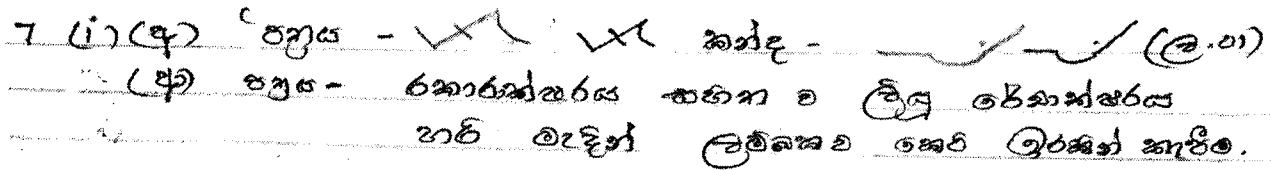 7 (i) (අ) පත්‍රය - කන්ද - (ල.01)
(ආ) පත්‍රය - රකාරාක්ෂරය සහිත ව ලියූ රේඛාක්ෂරය
හරි මැදින් ලම්බකව කෙටි ඉරකින් කැපීම.